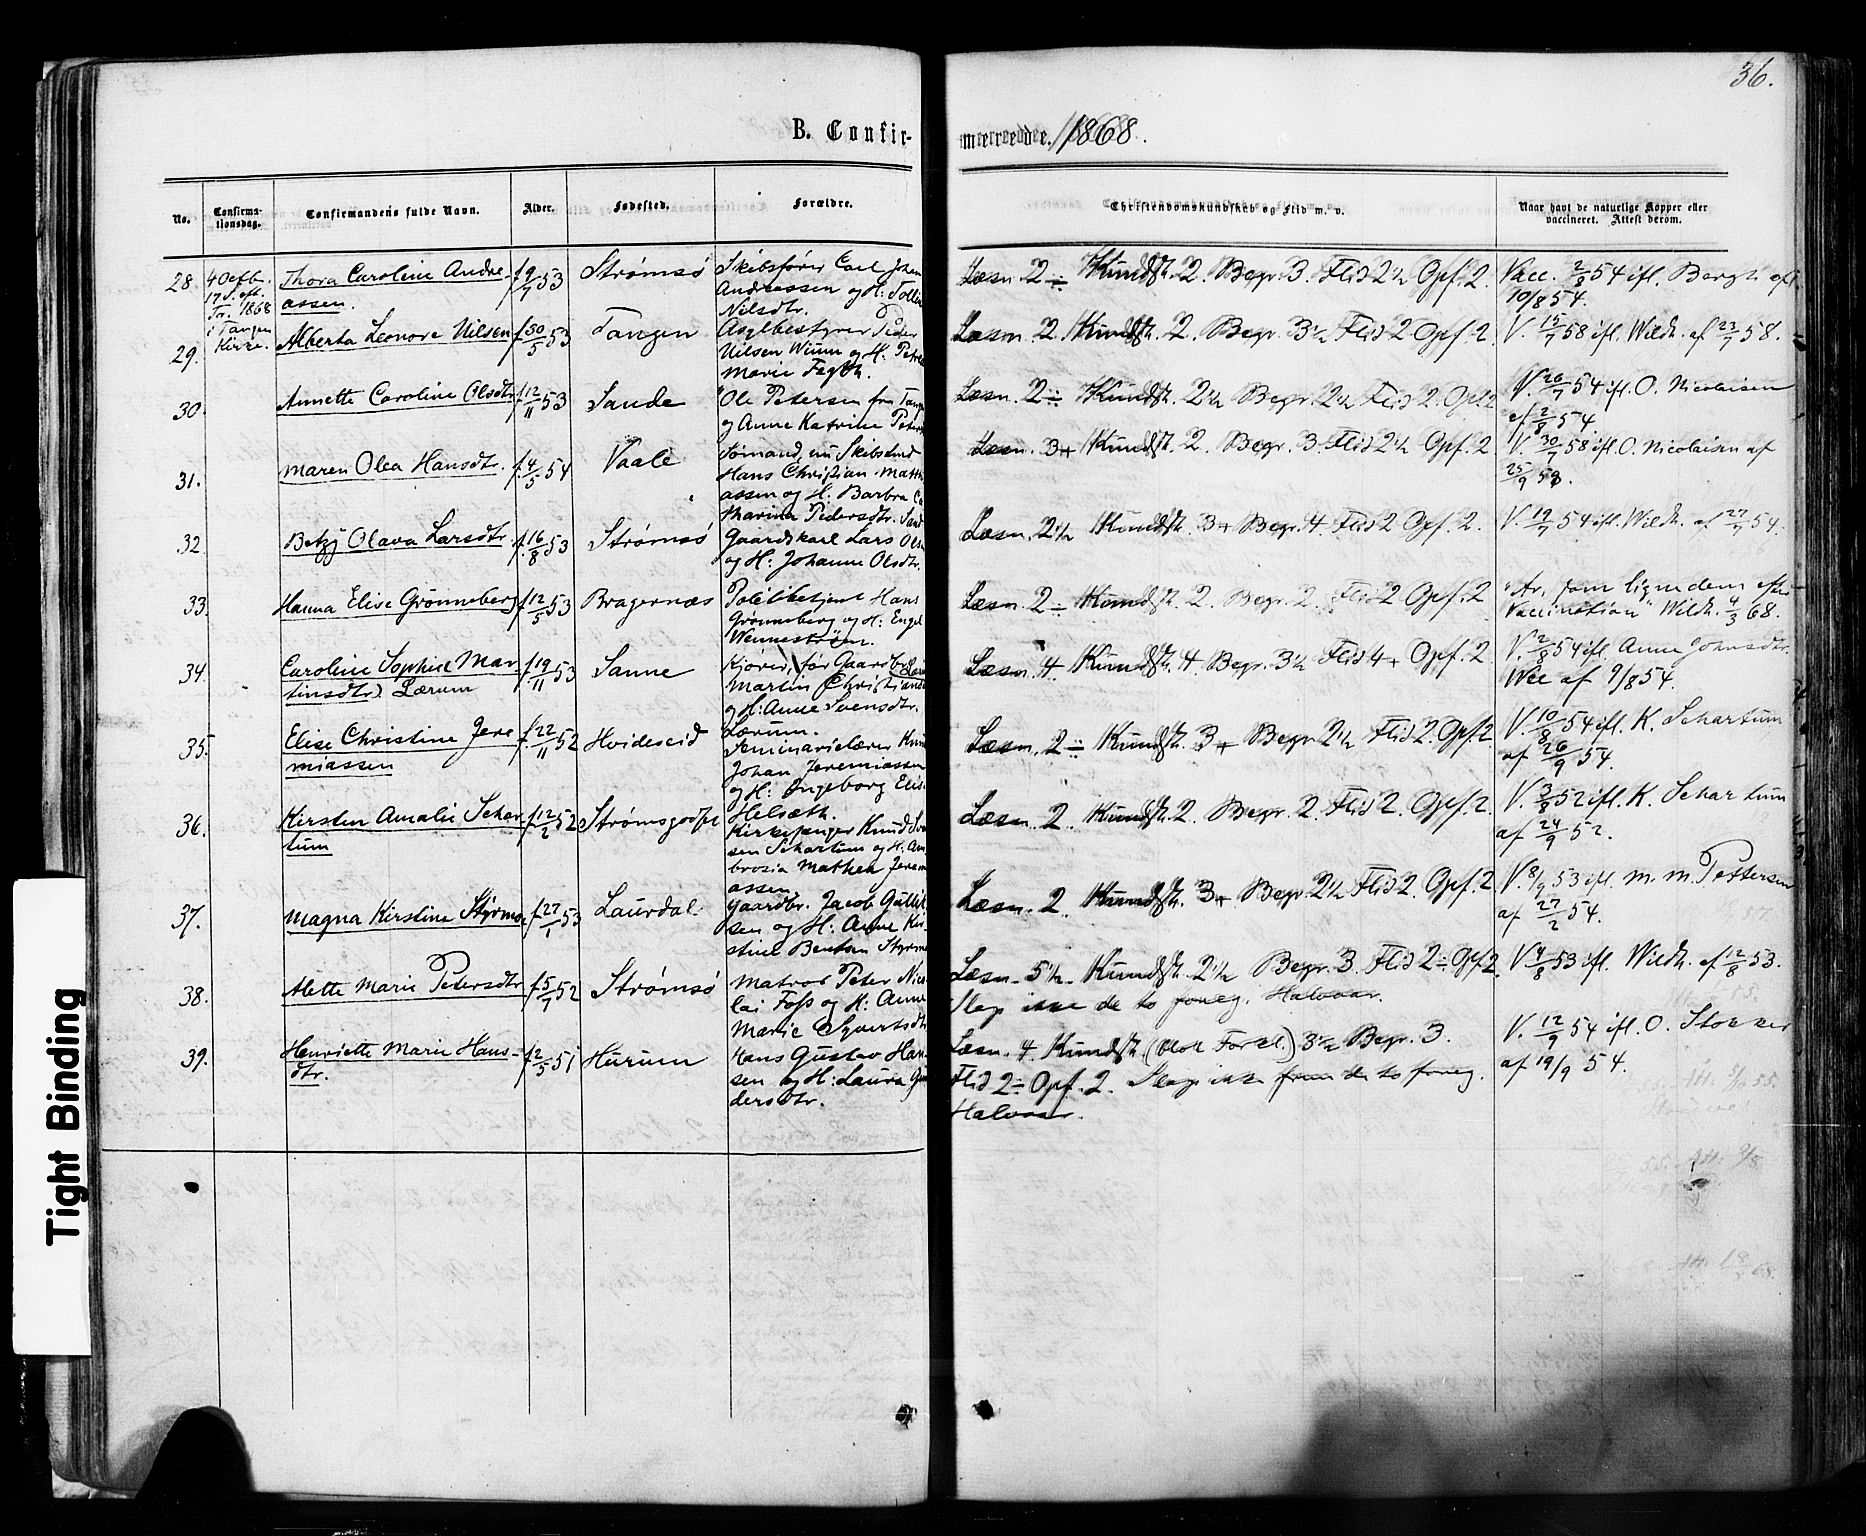 36.
B. Confir-
merede. 1868.
No.
Confirma-
tionsdag.
Confirmandens fulde Navn.
Alder.
Fødested.
Forældre.
Christendomskundskab og Flid m. v.
Naar havt de naturlige Kopper eller
vaccineret. Attest derom.
28.
4 Octbr.
17 S. eft.
Tr. 1868
i Tangen
Kirke.
Thora Caroline Andre-
assen.
f. 9/7 53
Strømsø
Skibsfører Carl Johan
Andreassen og H:
Nilsdtr.
Læsn. 2 ÷ Kundsk. 2. Begr. 3. Flid 2½ Opf. 2.
Vacc. 2/8 54 ifl. Bergh af
10/8 54.
29.
Alberta Leonore Nilsen
f. 30/5 53
Tangen
Asylbestyrer Peder
Nilsen Wium og H:
Marie
Læsn. 2. Kundsk. 2. Begr. 3½ Flid 2 Opf. 2.
V. 15/7 58 ifl. Wildh. af 23/7 58.
30.
Annette Caroline Olsdtr.
f. 12/11 53
Sande
Ole Petersen fra
og Anne Katrine
Læsn. 2 ÷ Kundsk. 2½ Begr. 2½ Flid 2. Opf. 2
V. 26/7 54 ifl. O. Nicolaisen
af 2/8 54.
31.
Maren Olea Hansdtr.
f. 4/5 54
Vaale
Sømand, nu
Hans Christian Matth
assen og H: Barbra Ca
tharina Pedersdtr.
Læsn. 3+ Kundsk. 2. Begr. 3. Flid 2½ Opf. 2
V. 30/7 58 ifl. O. Nicolaisen af
25/9 58.
32.
Betzy Olava Larsdtr.
f. 16/8 53
Strømsø
Gaardskarl Lars Olsen
og H: Johanne Olsdtr.
Læsn. 2½ Kundsk. 3+ Begr. 4. Flid 2 Opf. 2.
V. 19/7 54 ifl. Wildh. af 27/7 54.
33.
Hanna Elise Grønneberg
f. 12/5 53
Bragernæs
Politibetjent Hans
Grønneberg og H: Engel
Wennestrøm.
Læsn. 2 ÷ Kundsk. 2. Begr. 2. Flid 2 Opf. 2
"Ar, som ligne dem efter
Vaccination" Wildh. 4/3 68.
34.
Caroline Sophie Mar-
tinsdtr. Lærum
f. 19/11 53
Sanne
Kjører, før Gaardbr.
Martin Christians
og H: Anne Svensdtr.
Lærum.
Læsn. 4. Kundsk. 4. Begr. 3½ Flid 4+ Opf. 2
V. 2/8 54 ifl. Anne Johnsdtr.
Wee af 9/8 54.
35.
Elise Christine Jere
miassen
f. 22/11 52
Hvideseid
Seminarielærer Knud
Johan Jeremiassen
og H: Ingeborg Elis
Helsæth.
Læsn. 2 ÷ Kundsk. 3+ Begr. 2½ Flid 2. Opf. 2
V. 10/8 54 ifl. K. Schartum
af 26/9 54.
36.
Kirsten Amalie Schar
tum
f. 12/2 52
Strømsgodset
Kirkesanger Knud
sen Schartum og H: Am
brosia Mathea Jeremi
assen.
Læsn. 2. Kundsk. 2. Begr. 2. Flid 2. Opf. 2
V. 3/9 52 ifl. K. Schartum
af 24/9 52.
37.
Magna Kirstine Styrmoe
f. 27/1 53
Laurdal
Gaardbr. Jacob Gullik
sen og H: Anne Kir-
stine Bentsen
Læsn. 2. Kundsk. 3+ Begr. 2½ Flid 2. Opf. 2
V. 8/9 53 ifl. M. M. Pettersen
af 27/2 54.
38.
Alette Marie Petersdtr.
f. 5/7 52
Strømsø
Matros Peter Nico
lai Foss og H: Anne
Marie Syvertsdtr.
Læsn. 5½ Kundsk. 2½ Begr. 3. Flid 2 ÷ Opf. 2
Slap ikke de to foreg. Halvaar.
V. 4/8 53 ifl. Wildh. af 12/8 53.
39.
Henriette Marie Hans-
dtr.
f. 2/5 51
Hurum
Hans Gustav Han-
sen og H: Laura Gun
dersdtr.
Læsn. 4. Kundsk. (blot Forkl.) 3½ Begr. 3.
Flid 2 ÷ Opf. 2. Slap ikke frem de to foreg.
Halvaar.
V. 12/9 54 ifl. O. Stokker
af 19/9 54.
Tight Binding